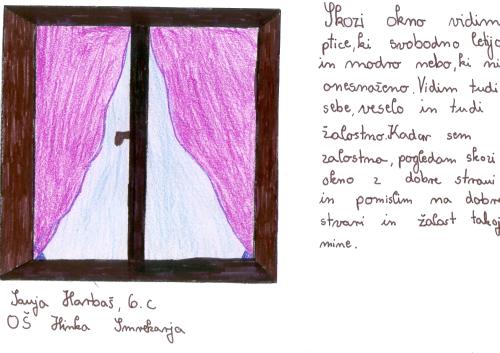 Skozi okno vidim
ptice, ki svobodno letijo
in modro nebo, ki ni
onesnaženo. Vidim tudi
sebe, veselo in tudi
žalostno. Kadar sem
žalostna, pogledam skozi
okno z dobre strani
in pomislim na dobre
stvari in žalost takoj
mine.
Sanja Harbaš, 6. c
OŠ Hinka Smrekarja